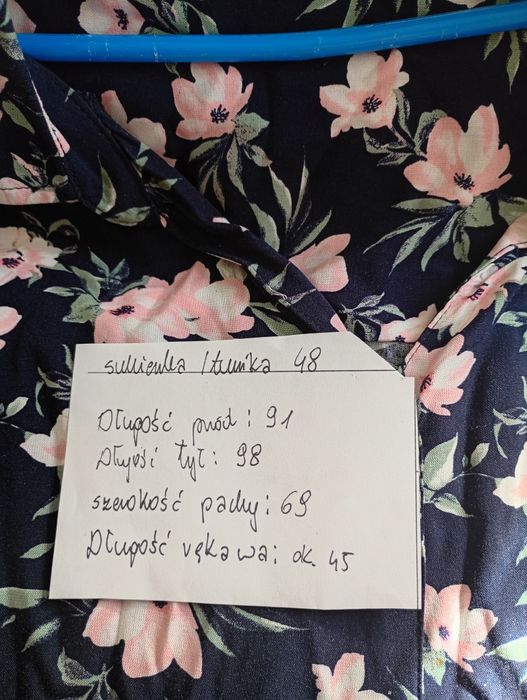 sukienka / tunika 48
Długość przód : 91
Długość tył : 98
szerokość pachy : 69
Długość rękawa : ok. 45